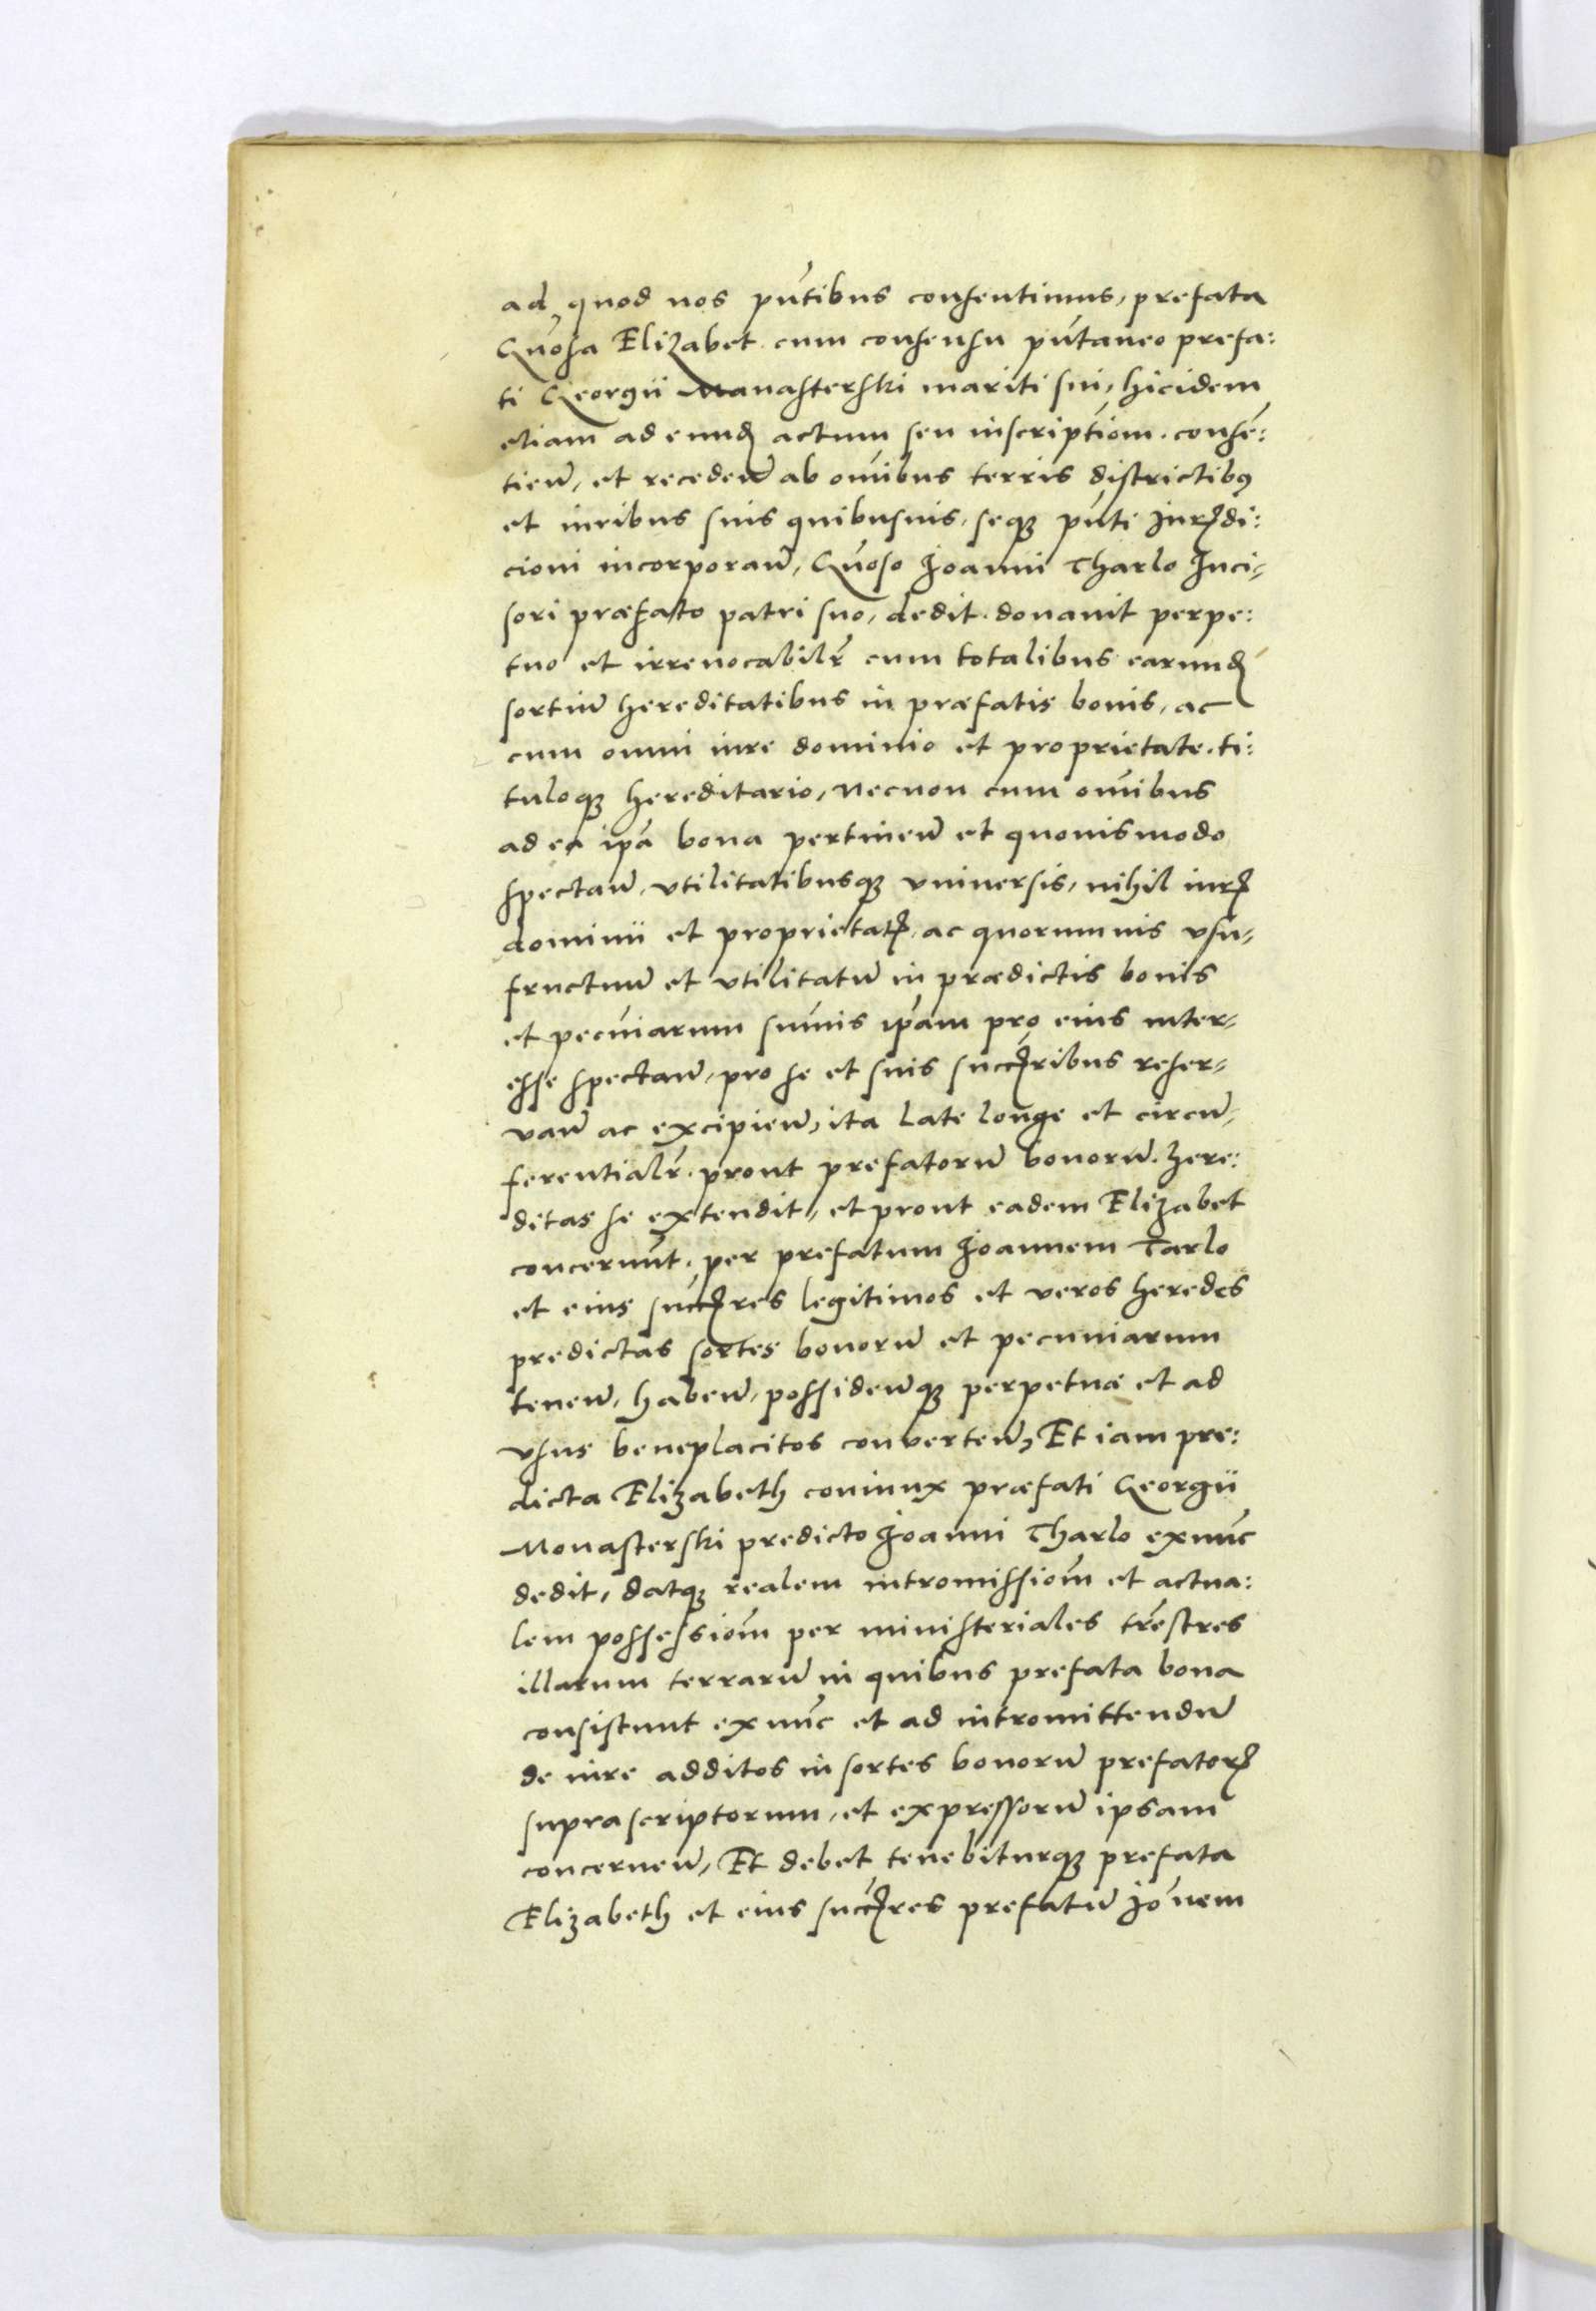 ad quod nos pñtibus consentimus, prefata
Gñosa Elizabet cum consensu pñtaneo prefa:
ti Georgii Manasterski mariti sui, hicidem
etiam ad eund actum seu inscriptiom. consē:
tien̄, et receden̄ ab om̄ibus terris districtibꝰ
et iuribus suis quibusuis, seqꝫ pñti Jurꝭdi:
cioni incorporan̄, Gñoso Joanni Tharlo Inci-
sori præfato patri suo, dedit. donauit perpe:
tuo et irreuocabilr̄ cum totalibus earund
sortiū hereditatibus in præfatis bonis, ac
cum omni iure dominio et proprietate. ti:
tuloqꝫ hereditario, necnon cum om̄ibus
ad ea ip̄a bona pertinen̄ et quouismodo
spectan̄, vtilitatibusqꝫ vniuersis, nihil iurꝭ
dominii et proprietatꝭ, ac quorumuis vsu-
fructuū et vtilitatū in prædictis bonis
et pecūiarum sum̄is ip̄am pro eius inter-
esse spectan̄, pro se et suis succꝭribus reser-
uan̄ ac excipien̄, ita late longe et circū-
ferentialr̄. prout prefatorū bonorū. here:
ditas se extendit, et prout eadem Elizabet
concerunt̄. per prefatum Joannem Tarlo
et eius succꝭres legitimos et veros heredes
predictas sortes bonorū et pecuniarum
tenen̄, haben̄, possiden̄qꝫ perpetuæ et ad
vsus beneplacitos conuerten̄, Et iam pre:
dicta Elizabeth coniunx præfati Georgii
Monasterski predicto Joanni Tharlo exnūc
dedit, datqꝫ realem intromissiom̄ et actua:
lem possessiom̄ per ministeriales tr̄estres
illarum terrarū in quibus prefata bona
consistunt exnūc et ad intromittendū
de iure additos in sortes bonorū prefatorꝭ
suprascriptorum, et expressorū ipsam
concernen̄, Et debet tenebiturqꝫ prefata
Elizabeth et eius succꝭres prefatū Jōnem